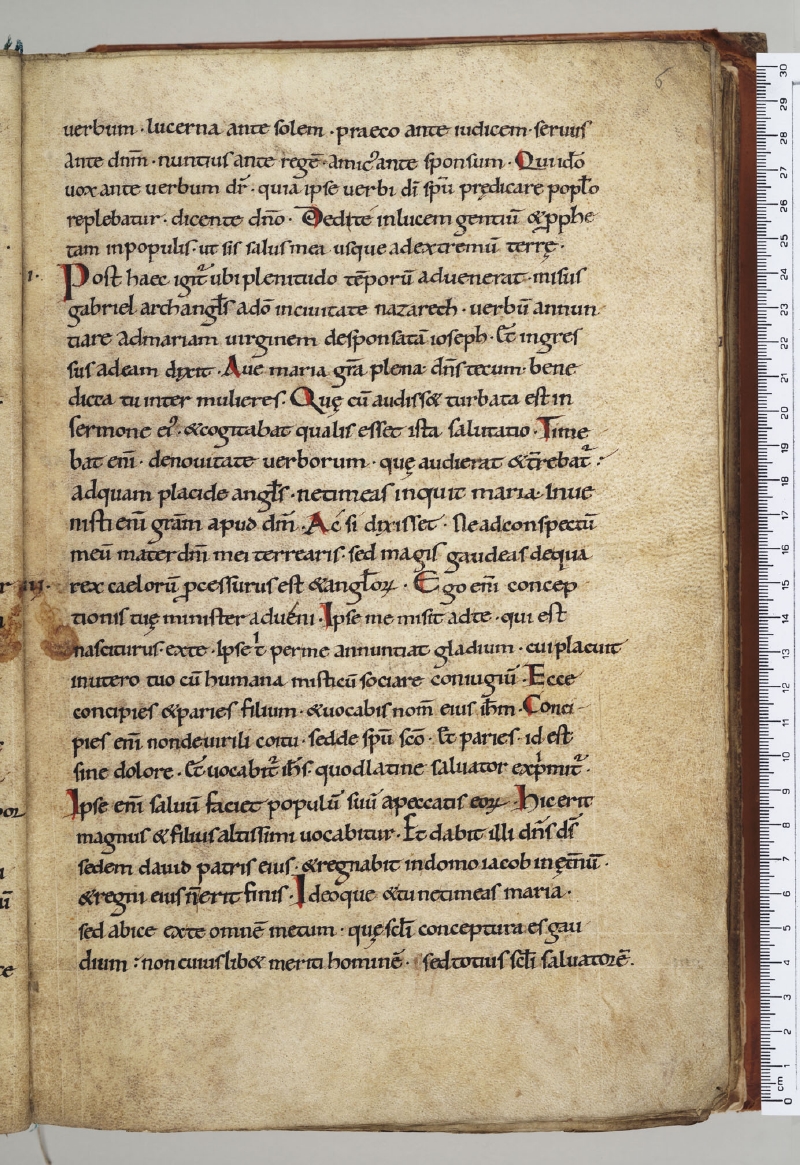 6
uerbum · lucerna ante solem · praeco ante iudicem · seruus
ante dnm̄ · nuntius ante regē · amic᾽ ante sponsum · Qui ido
uox ante uerbum dr̄ · quia ipse uerbi dī spū prędicare poplo
replebatur · dicente dn̄o · Dedi te in lucem gentiū &pphe
tam in populis · ut sis salus mea usque ad extremū terrę ·
Post haec igit᷑ ubi plenitudo tēporū aduenerat · misus
gabriel archangl̄s a dō in ciuitate nazareth · uerbū annun
tiare ad mariam uirginem desponsatā ioseph · Et ingres
sus ad eam dixit · Aue maria gr̄a plena dn̄s tecum · bene
dicta tu inter mulieres · Quę cū audiss& turbata est in
sermone ei᾽ · &cogitabat qualis esset ista salutatio · Time
bat enī · de nouitate uerborum · quę audierat &t̄rebat᷑ :
ad quam placide angl̄s · ne timeas inquit maria · Inue
nisti enī gr̄am apud dm̄ · Ac si dixisset · Ne ad conspectū
meū mater dn̄i mei terrearis · sed magis gaudeas de qua
rex caelorū pcessurus est &anglorꝝ · Ego enī concep
tionis tuę minister adueni · Ipse me misit ad te · qui est
nasciturus · ex te · Ipse t᷑ per me annuntiat gladium · cui placuit
in utero tuo cū humana misticū sociare coniugiū · Ecce
concipies &paries filium · &uocabis nom̄ eius ih̄m · Conci-
pies enī non de uirili coitu · sed de spū scō · Et paries · id est
sine dolore · Et uocabit᷑ ih̄s · quod latine saluator exp̄mit᷑ ·
Ipse enī saluū faciet populū suū a peccatis eorꝝ · Hic erit
magnus &filius altissimi uocabitur · Et dabit illi dn̄s ds̄
sedem dauid patris eius · &regnabit in domo iacob in ęt̄nū ·
&regni eius n̄ erit finis · Ideoque &tu ne timeas maria ·
sed abice ex te omnē metum · quę scl̄i conceptura es gau
dium : non cuiuslib& meriti hominē · sed totius scl̄i saluatorē .